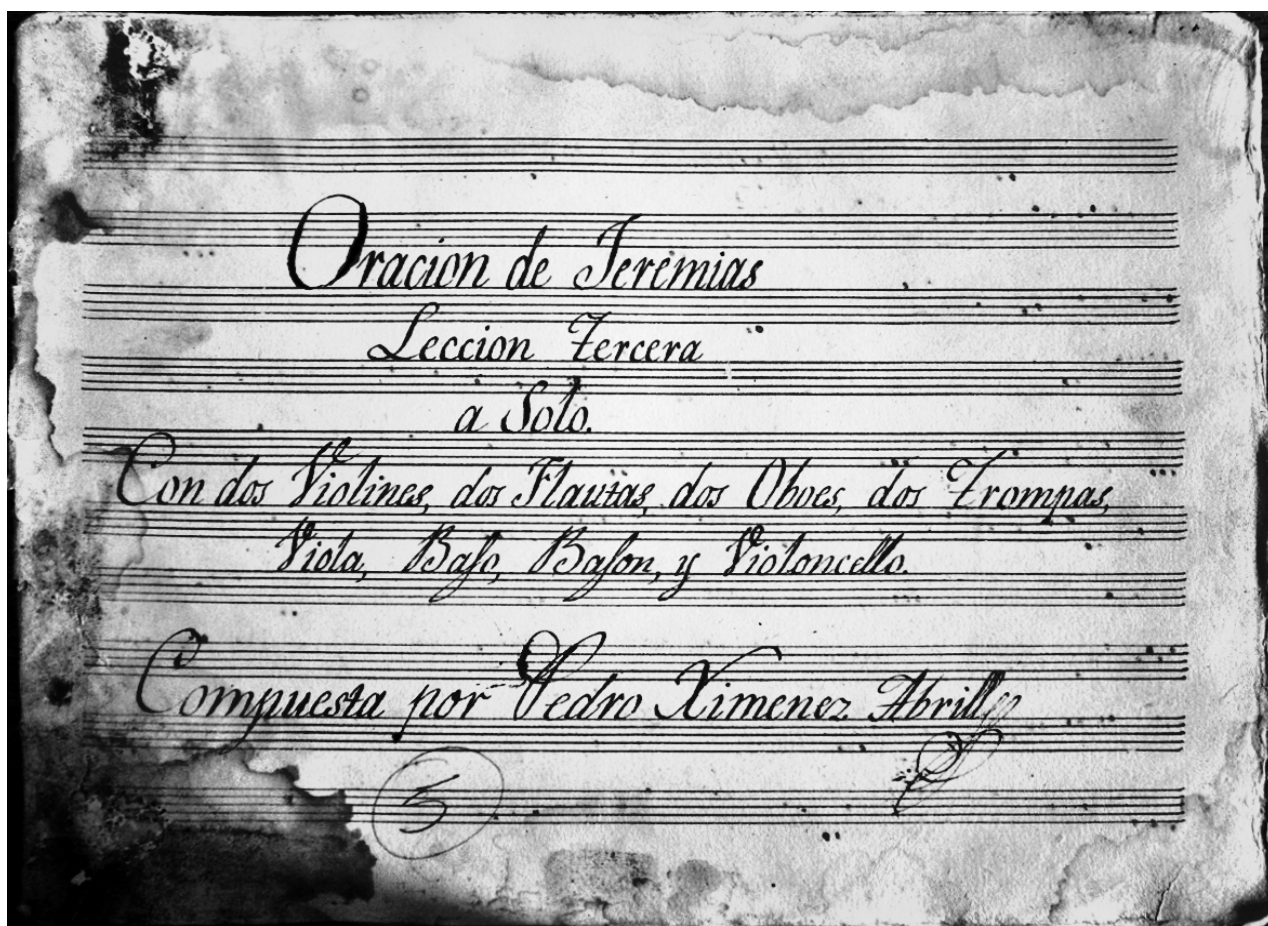 Oracion de Jeremias
Leccion Tercera
a Solo.
Con dos Violines, dos Flautas, dos Oboes, dos Trompas,
Viola, Baſo, Baſon, y Violoncello.
Compuesta por Pedro Ximenez Abrill
5